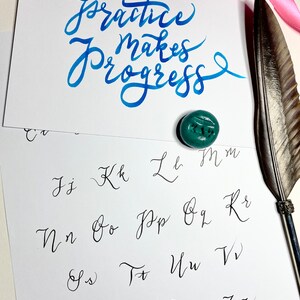 Practice
Makes
Progress
Jj Kk Ll Mm
Nn Oo Pp Qq Rr
Ss Tt Uu Vv